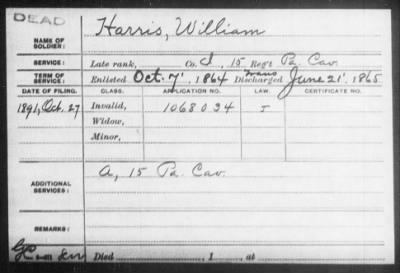 DEAD
NAME OF SOLDIER: Harris, William
SERVICE: Late rank, Co. I, 15 Reg't Pa. Cav.
TERM OF SERVICE: Enlisted Oct. 7, 1864 Discharged trans June 21, 1865
DATE OF FILING. CLASS. APPLICATION NO. LAW. CERTIFICATE NO.
1891, Oct. 27 Invalid, 1068034 I
Widow,
Minor,
ADDITIONAL SERVICES: A, 15 Pa. Cav.
REMARKS:
Died , 1 , at